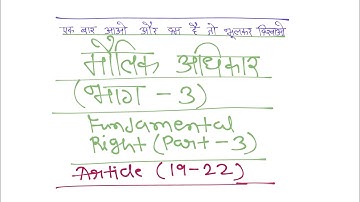 एक बार आओ और दम है तो भूलकर दिखाओ
मौलिक अधिकार
(भाग - 3)
Fundamental
Right (Part - 3)
Article (19-22)